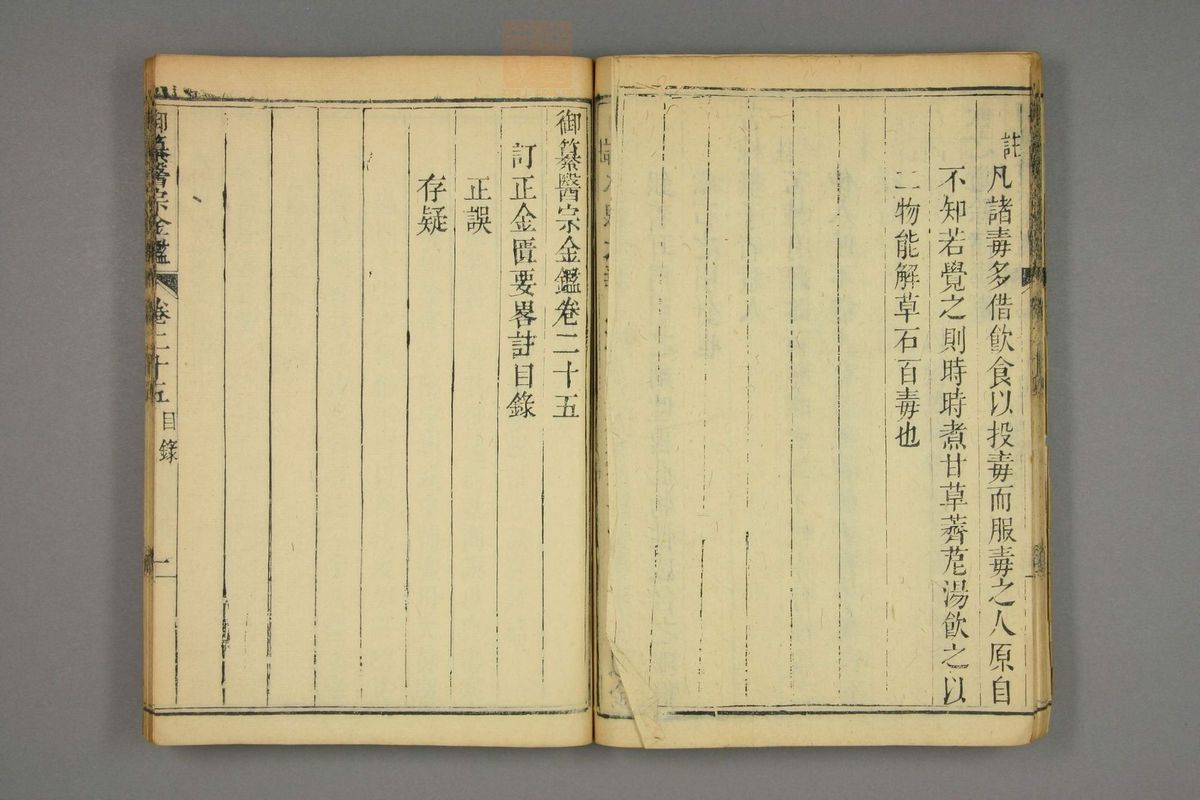 註
凡諸毒多借飲食以投毒而服毒之人原自
不知若覺之則時時煮甘草薺苨湯飲之以
二物能解草石百毒也
御纂醫宗金鑑卷二十五
訂正金匱要畧註目錄
正誤
存疑
御纂醫宗金鑑 卷二十五 目錄 一